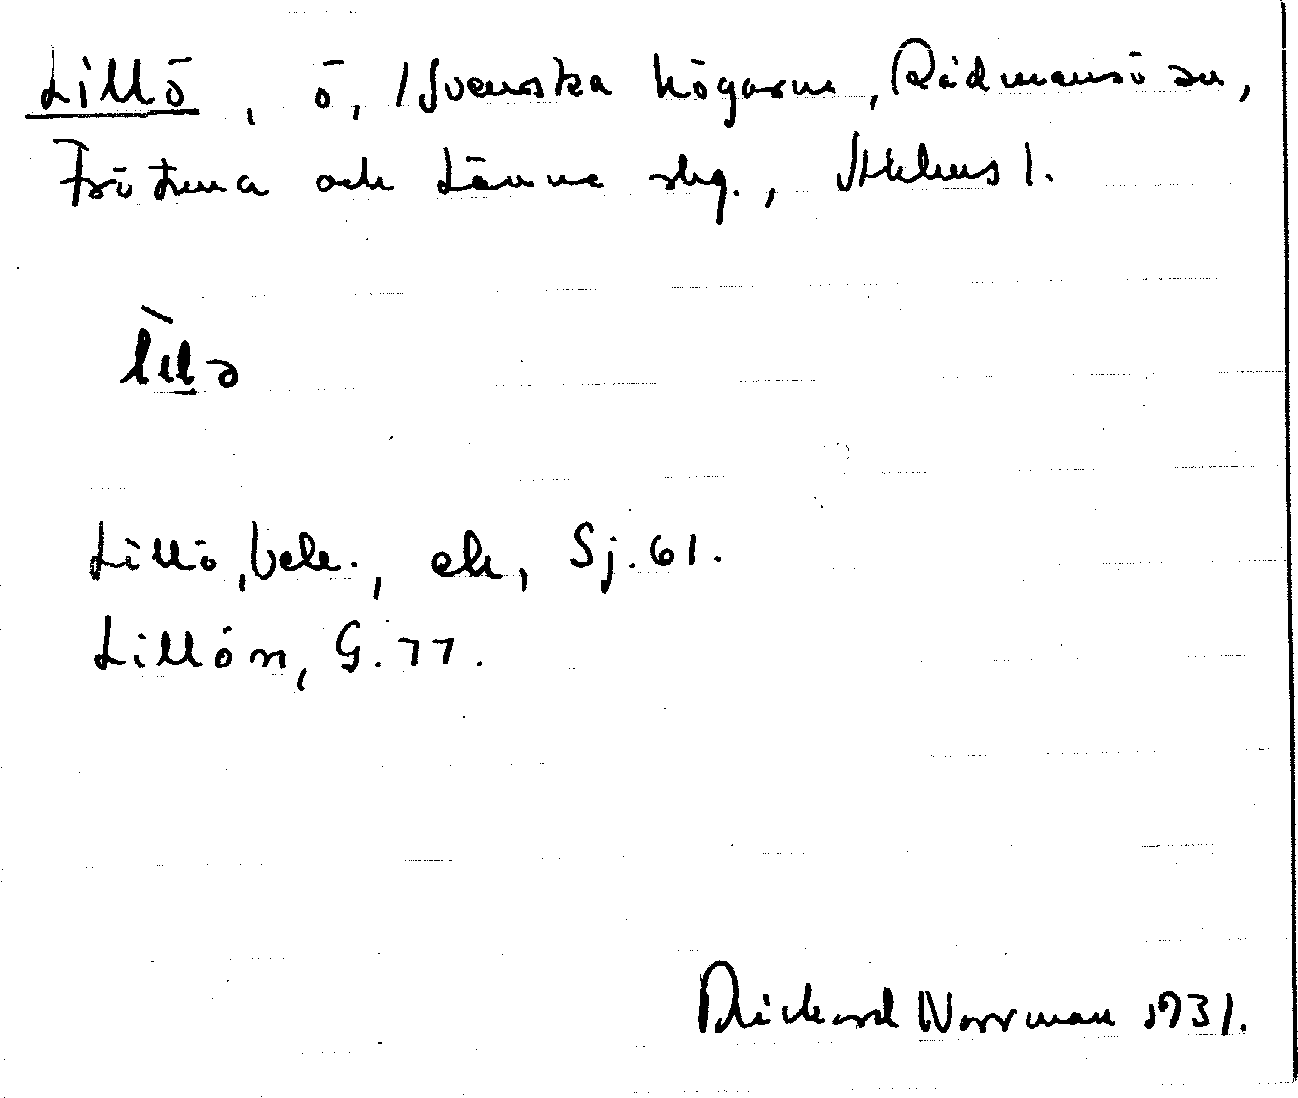 Lillö, ö, i Svenska högarne, Rådmansö sn,
Frötuna och Länna skg., Sthlms l.
lìllə
Lillö, bek., ek, Sj. 61.
Lillön, G. 77.
Rickard Norrman 1931.